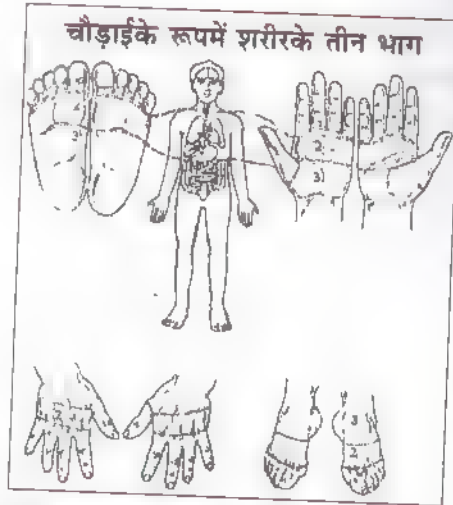 चौड़ाईके रूपमें शरीरके तीन भाग
2
3
1
2
3
2
3
2
1